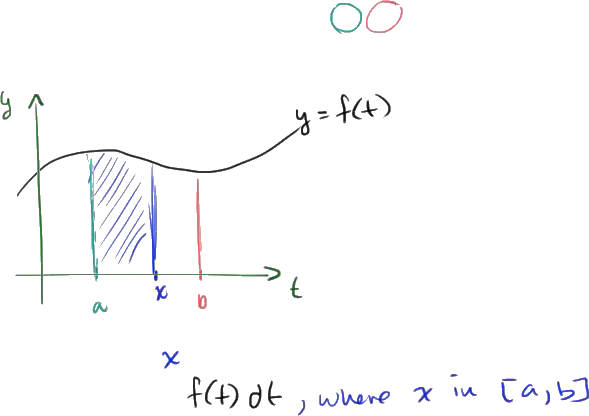 y
y = f(t)
a
x
b
t
x
f(t) dt , where x in [a,b]